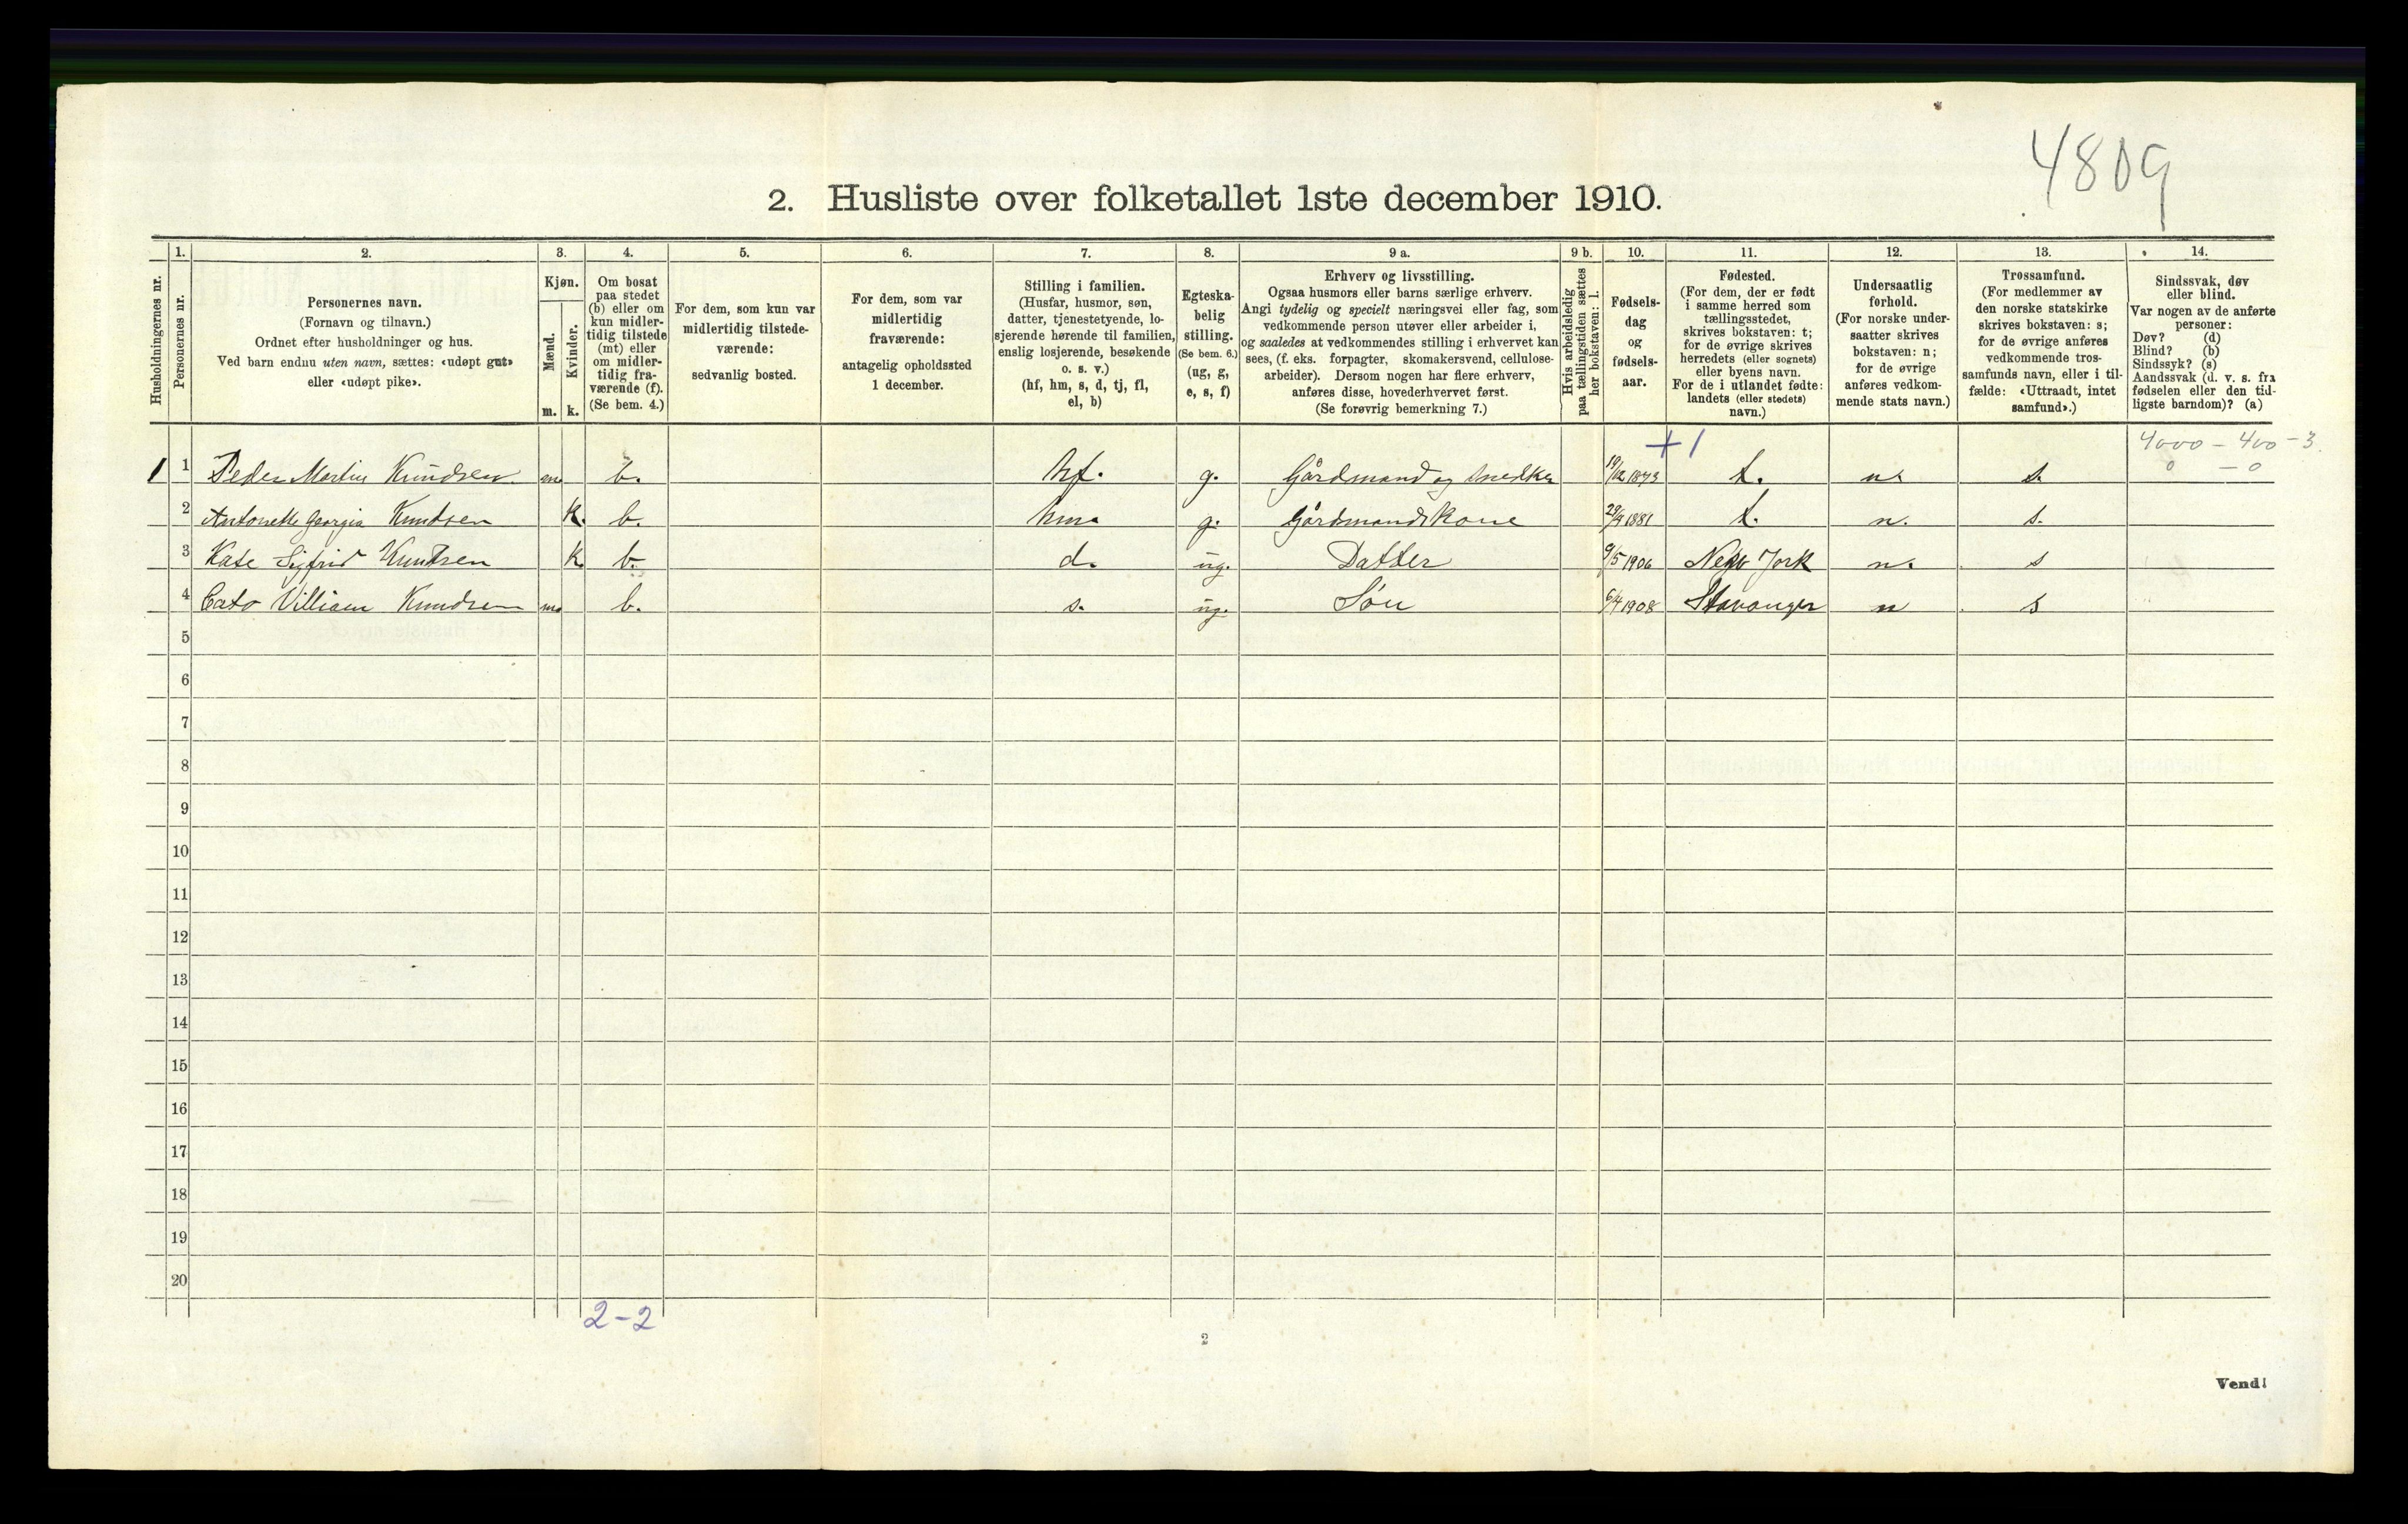 4809
2. Husliste over folketallet 1ste december 1910.
Husholdningernes nr.
1.
Personernes nr.
2.
Personernes navn.
(Fornavn og tilnavn.)
Ordnet efter husholdninger og hus.
Ved barn endnu uten navn, sættes: «udøpt gut»
eller «udøpt pike».
3.
Kjøn.
Mænd.
Kvinder.
m.
k.
4.
Om bosat
paa stedet
(b) eller om
kun midler-
tidig tilstede
(mt) eller
om midler-
tidig fra-
værende (f).
(Se bem. 4.)
5.
For dem, som kun var
midlertidig tilstede-
værende:
sedvanlig bosted.
6.
For dem, som var
midlertidig
fraværende:
antagelig opholdssted
1 december.
7.
Stilling i familien.
(Husfar, husmor, søn,
datter, tjenestetyende, lo-
sjerende hørende til familien,
enslig losjerende, besøkende
o. s. v.)
(hf, hm, s, d, tj, fl,
el, b)
8.
Egteska-
belig
stilling.
(Se bem. 6.)
(ug, g,
e, s, f)
9 a.
Erhverv og livsstilling.
Ogsaa husmors eller barns særlige erhverv.
Angi tydelig og specielt næringsvei eller fag, som
vedkommende person utøver eller arbeider i,
og saaledes at vedkommendes stilling i erhvervet kan
sees, (f. eks. forpagter, skomakersvend, cellulose-
arbeider). Dersom nogen har flere erhverv,
anføres disse, hovederhvervet først.
(Se forøvrig bemerkning 7.)
9 b.
Hvis arbeidsledig
paa tællingstiden sættes
her bokstaven: l.
10.
Fødsels-
dag
og
fødsels-
aar.
11.
Fødested.
(For dem, der er født
i samme herred som
tællingsstedet,
skrives bokstaven: t;
for de øvrige skrives
herredets (eller sognets)
eller byens navn.
For de i utlandet fødte:
landets (eller stedets)
navn.)
12.
Undersaatlig
forhold.
(For norske under-
saatter skrives
bokstaven: n;
for de øvrige
anføres vedkom-
mende stats navn.)
13.
Trossamfund.
(For medlemmer av
den norske statskirke
skrives bokstaven: s;
for de øvrige anføres
vedkommende tros-
samfunds navn, eller i til-
fælde: «Uttraadt, intet
samfund».)
14.
Sindssvak, døv
eller blind.
Var nogen av de anførte
personer:
Døv? (d)
Blind? (b)
Sindssyk? (s)
Aandssvak (d. v. s. fra
fødselen eller den tid-
ligste barndom)? (a)
+1
4000 – 400 – 3.
0 – 0
1 1 Peder Martin Knudsen m b. hf. g. Gårdmand og snedker 19/12 1873 t. n. s.
2 Antonette Georgia Knudsen k. b. hm. g. Gårdmandskone 29/9 1881 t. n. s.
3 Kate Sigfrid Knudsen k b. d. ug. Datter 9/5 1906 New York n. s
4 Cato Villiam Knudsen m b. s. ug. Søn 6/4 1908 Stavanger n s
5
6
7
8
9
10
11
12
13
14
15
16
17
18
19
20
2-2
2
Vend!